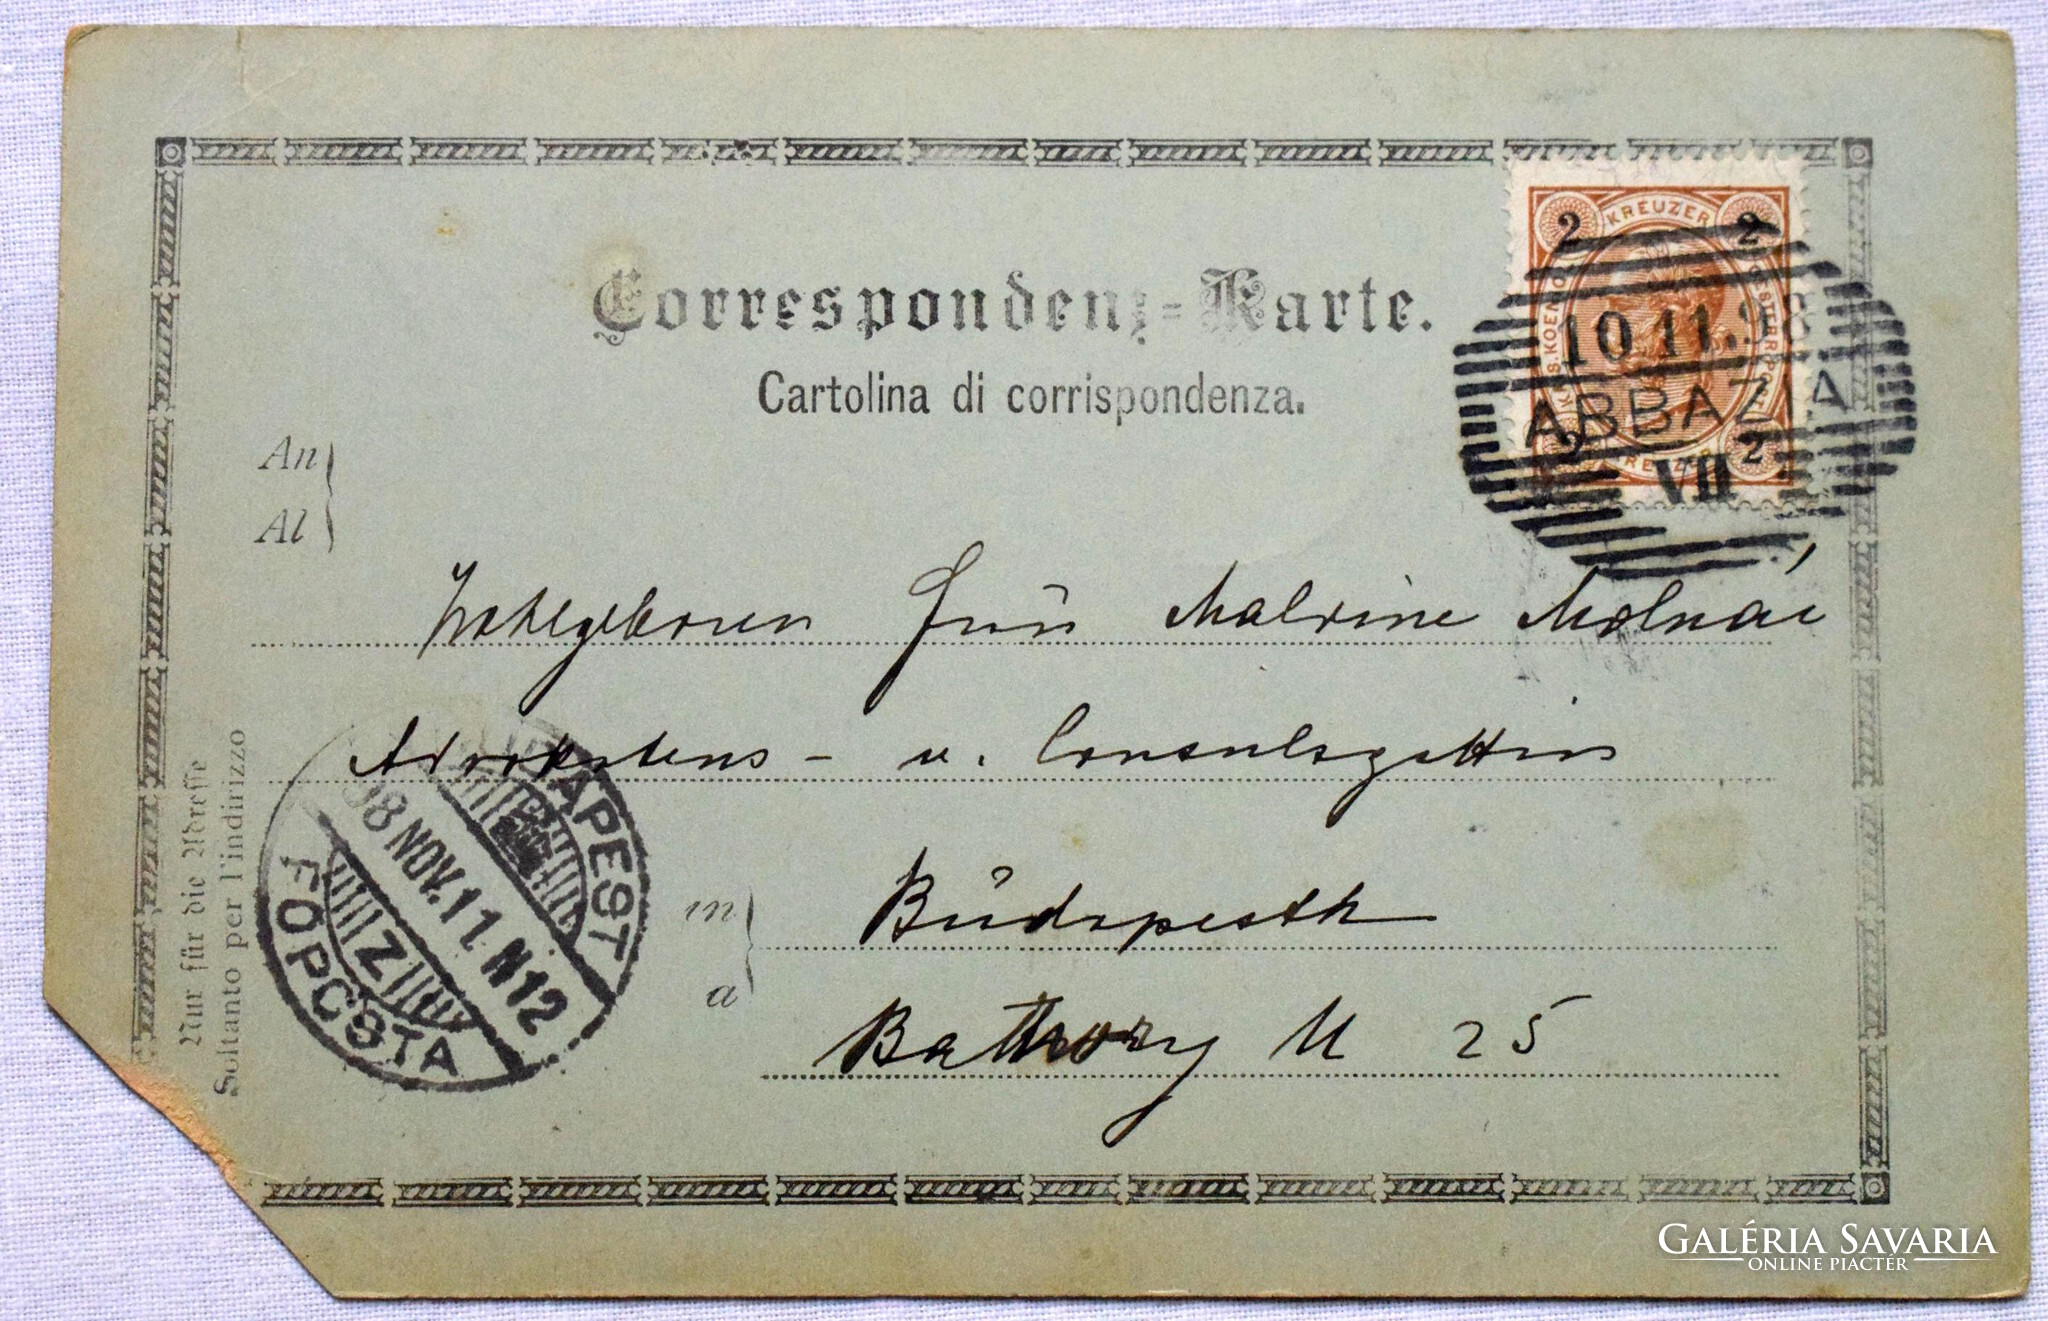 Correspondenz-Karte.
Cartolina di corrispondenza.
KREUZER
2 2
10.11.98
ABBAZIA
VII
2
An
Al
Wohlgeboren Frau Malvine Molnár
Advokatens- u. Consulsgattin
in
a
Budapesth
Bathory U 25
BUDAPEST
98 NOV. 11 N12
Z
FŐPOSTA
Nur für die Adresse
Soltanto per l'indirizzo
GALÉRIA SAVARIA
ONLINE PIACTÉR